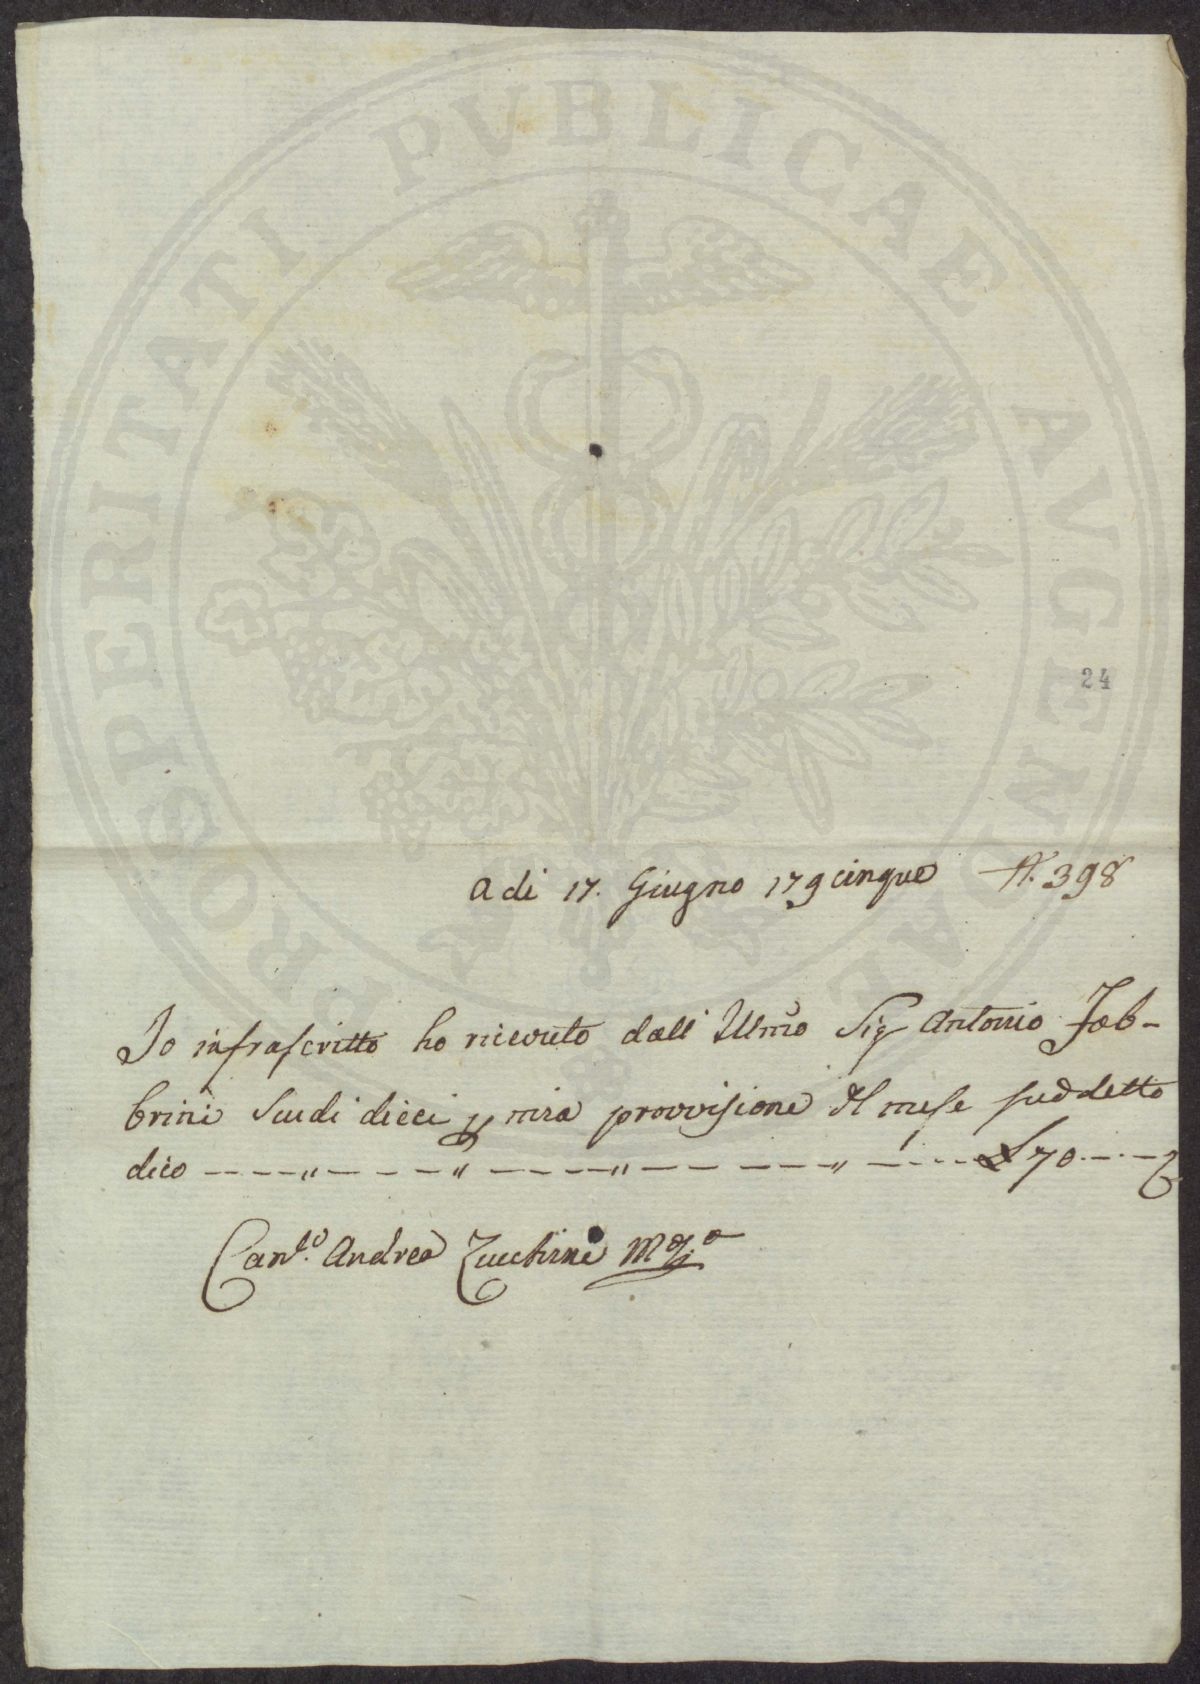 PROSPERITATI PUBLICAE AUGENDAE
24
A di 17. Giugno 179cinque N. 398
Io infrascritto ho ricevuto dall' Illmo Sig Antonio Fab-
brini Scudi dieci p mia provvisione del mese suddetto
dico £ 70
Canco. Andrea Zucchini